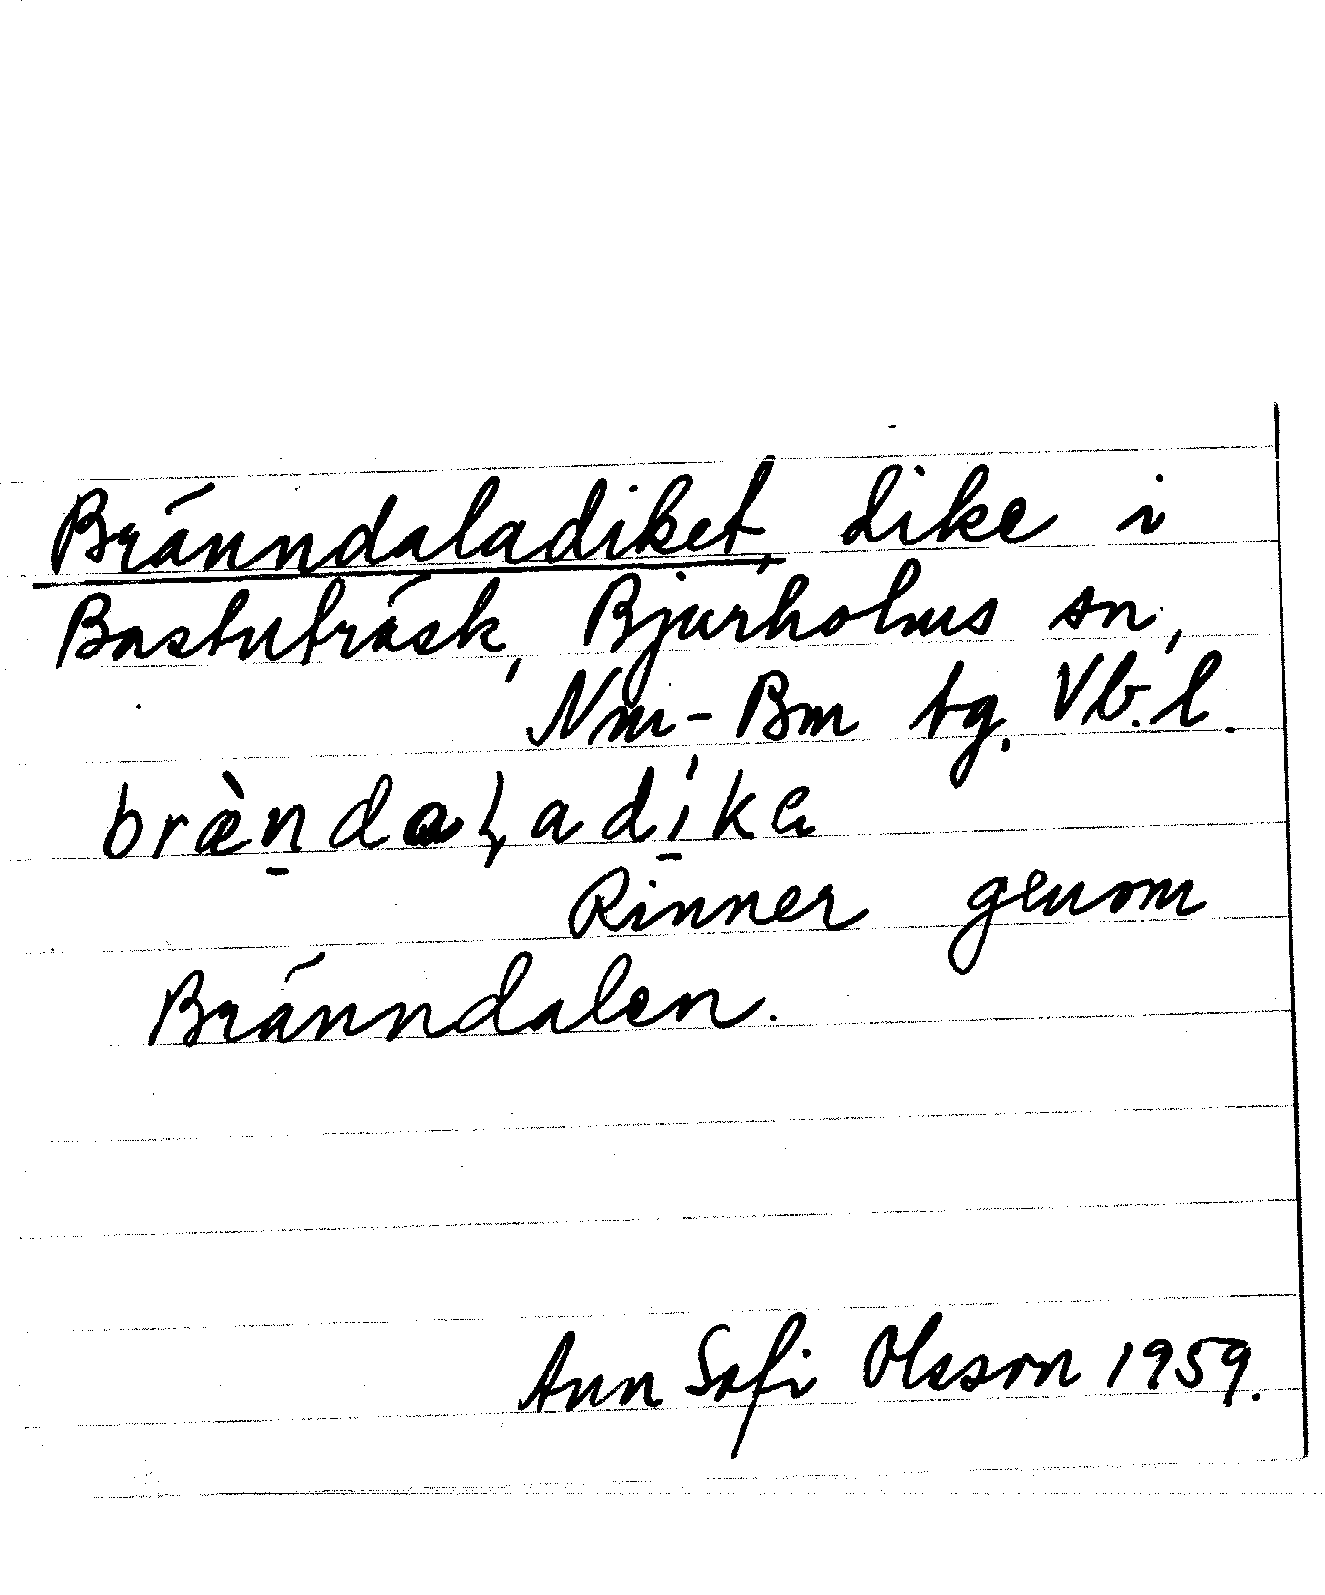 Bränndaladiket, dike i
Bastuträsk, Bjurholms sn,
Nm-Bm tg. Vb.l.
bræ̀n̠daɽadí̠ka
Rinner genom
Bränndalen.
Ann Sofi Olsson 1959.